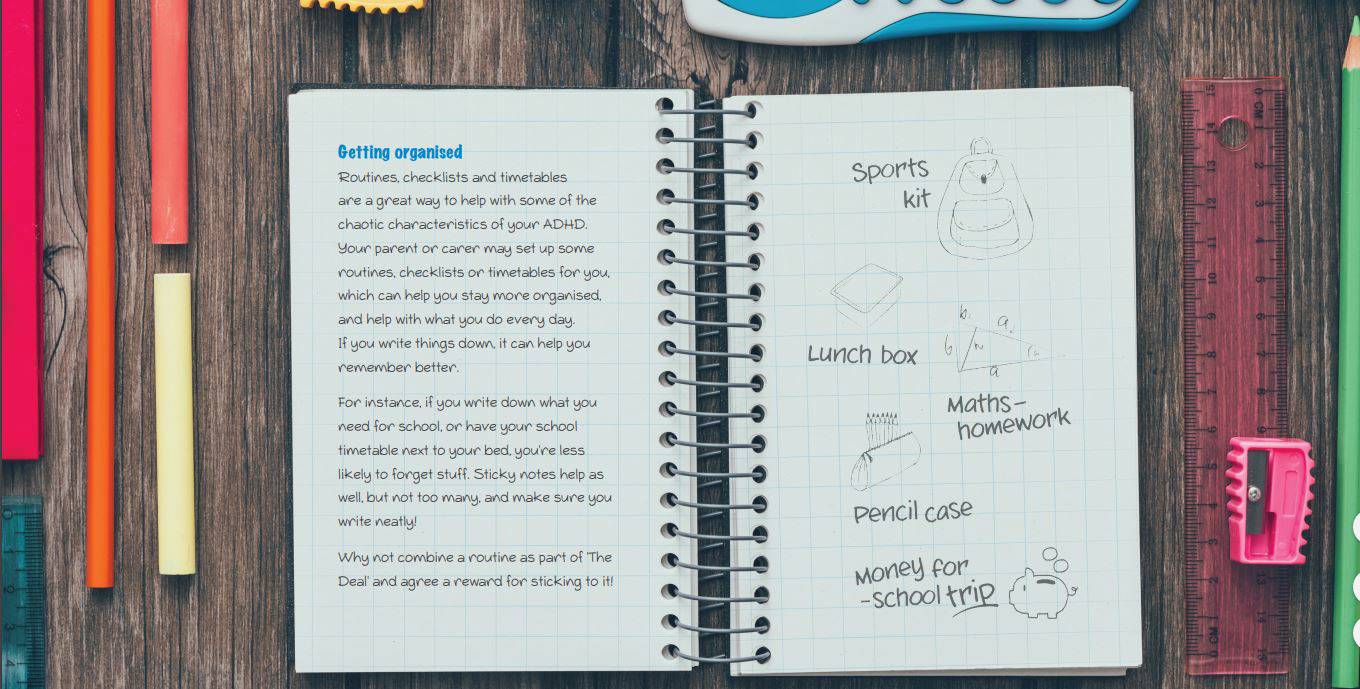 Getting organised
Routines, checklists and timetables
are a great way to help with some of the
chaotic characteristics of your ADHD.
Your parent or carer may set up some
routines, checklists or timetables for you,
which can help you stay more organised,
and help with what you do every day.
If you write things down, it can help you
remember better.
For instance, if you write down what you
need for school, or have your school
timetable next to your bed, you're less
likely to forget stuff. Sticky notes help as
well, but not too many, and make sure you
write neatly!
Why not combine a routine as part of 'The
Deal' and agree a reward for sticking to it!
Sports
kit
Lunch box
b
a
a
Maths-
homework
Pencil case
Money for
-school trip
0 CM
15
14
13
12
11
10
9
8
7
6
5
3
2
0 CM